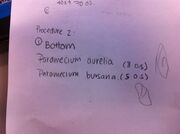 40x4 70 05.
Procedure 2:
① Bottom
Paramecium aurelia (8 05)
Paramecium bursaria (5 05)